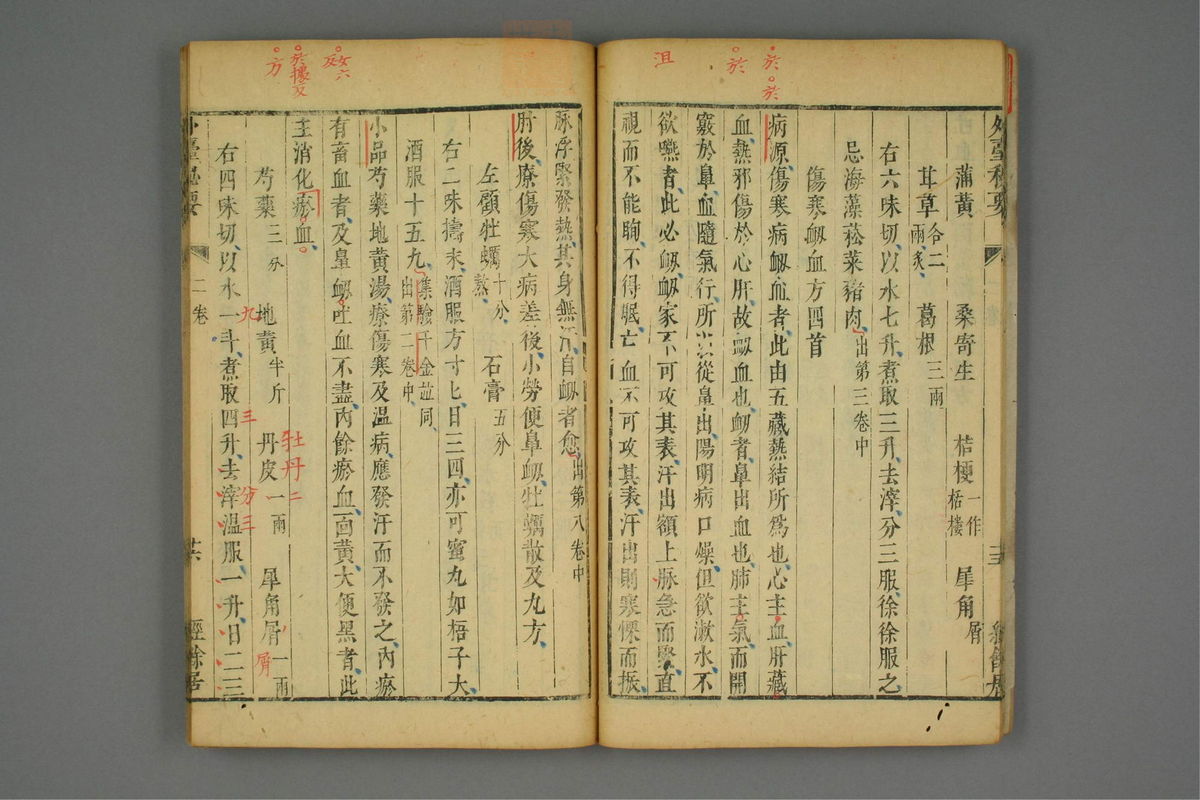 於
於
於
沮
外臺秘要
蒲黃 桑寄生 桔梗一作栝樓 犀角屑
甘草合二兩炙 葛根三兩
右六味切以水七升煮取三升去滓分三服徐徐服之
忌海藻菘菜豬肉出第三卷中
傷寒衂血方四首
病源傷寒病衂血者此由五藏熱結所爲也心主血肝藏
血熱邪傷於心肝故衂血也衂者鼻出血也肺主氣而開
竅於鼻血隨氣行所以從鼻出陽明病口燥但欲漱水不
欲嚥者此必衂衂家不可攻其表汗出額上脉急而緊直
視而不能眴不得眠亡血不可攻其表汗出則寒慄而振
脉浮緊發熱其身無汗自衂者愈出第八卷中
肘後療傷寒大病差後小勞便鼻衂牡蠣散及丸方
左顧牡蠣十分熬 石膏五分
右二味擣末酒服方寸匕日三四亦可蜜丸如梧子大
酒服十五丸集驗千金並同出第二卷中
小品芍藥地黃湯療傷寒及温病應發汗而不發之內瘀
有畜血者及鼻衂吐血不盡內餘瘀血面黃大便黑者此
主消化瘀血
芍藥三分 地黃半斤 丹皮一兩 犀角屑一兩
九 三 分三 牡丹二 屑
右四味切以水一斗煮取四升去滓温服一升日二三
外臺秘要 二卷 經餘居
方